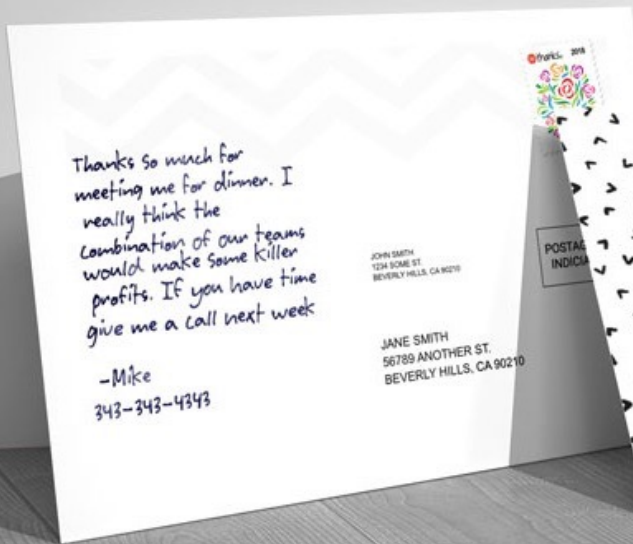 Thanks so much for
meeting me for dinner. I
really think the
combination of our teams
would make some killer
profits. If you have time
give me a call next week
-Mike
343-343-4343
thanks. 2018
JOHN SMITH
1234 SOME ST.
BEVERLY HILLS, CA 90210
JANE SMITH
56789 ANOTHER ST.
BEVERLY HILLS, CA 90210
INDICIA